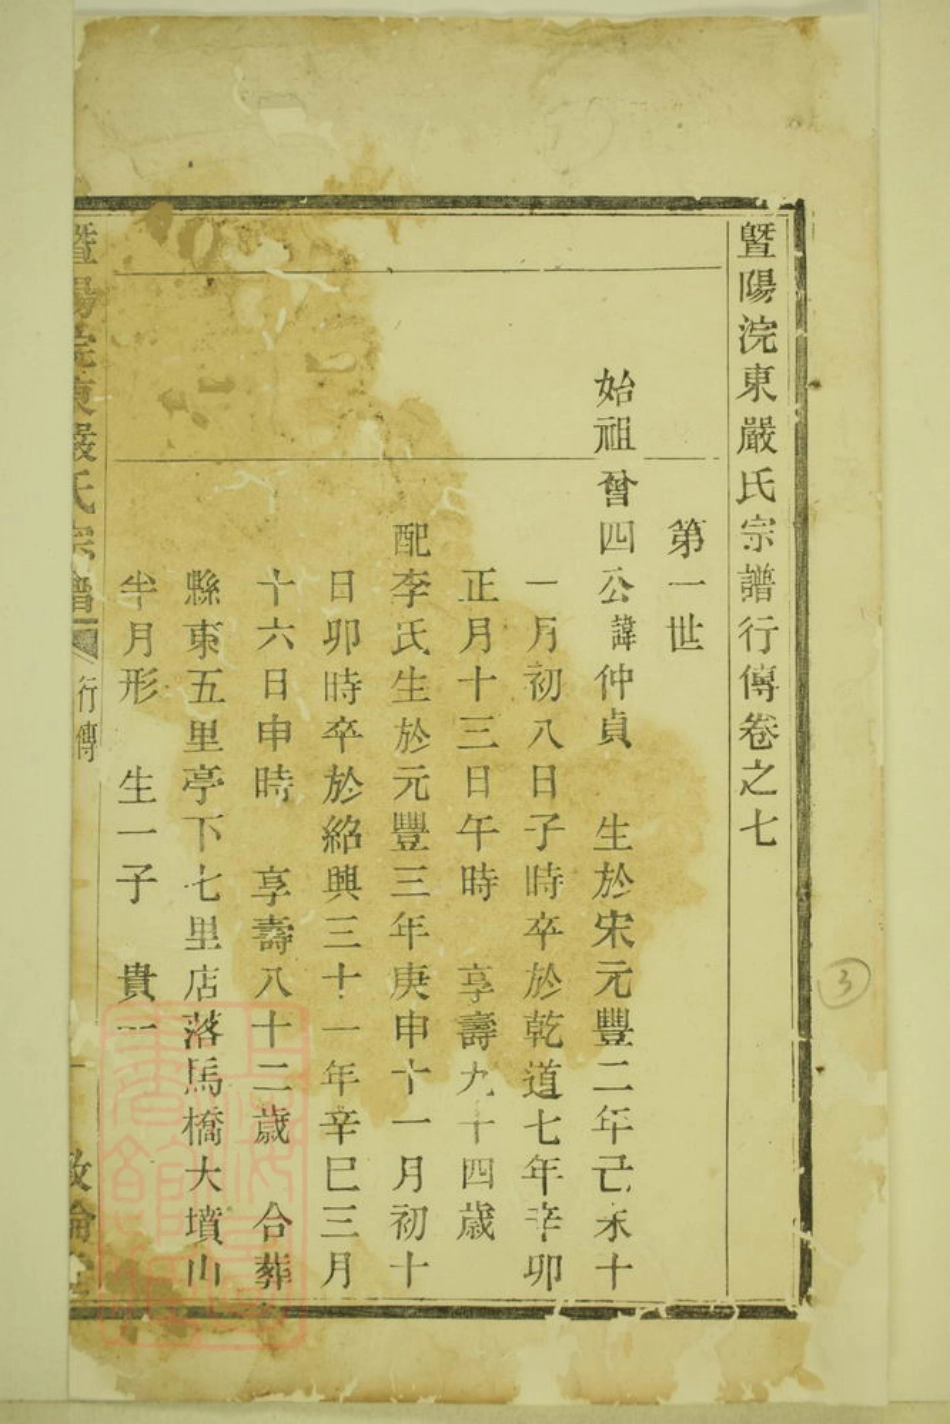 暨陽浣東嚴氏宗譜行傳卷之七
第一世
始祖曾四公諱仲貞　生於宋元豐二年己未十
一月初八日子時卒於乾道七年辛卯
正月十三日午時　享壽九十四歲
配李氏生於元豐三年庚申十一月初十
日卯時卒於紹興三十一年辛巳三月
十六日申時　享壽八十二歲　合葬
縣東五里亭下七里店落馬橋大墳山
半月形　生一子　貴一
暨陽浣東嚴氏宗譜　行傳　敦倫
3